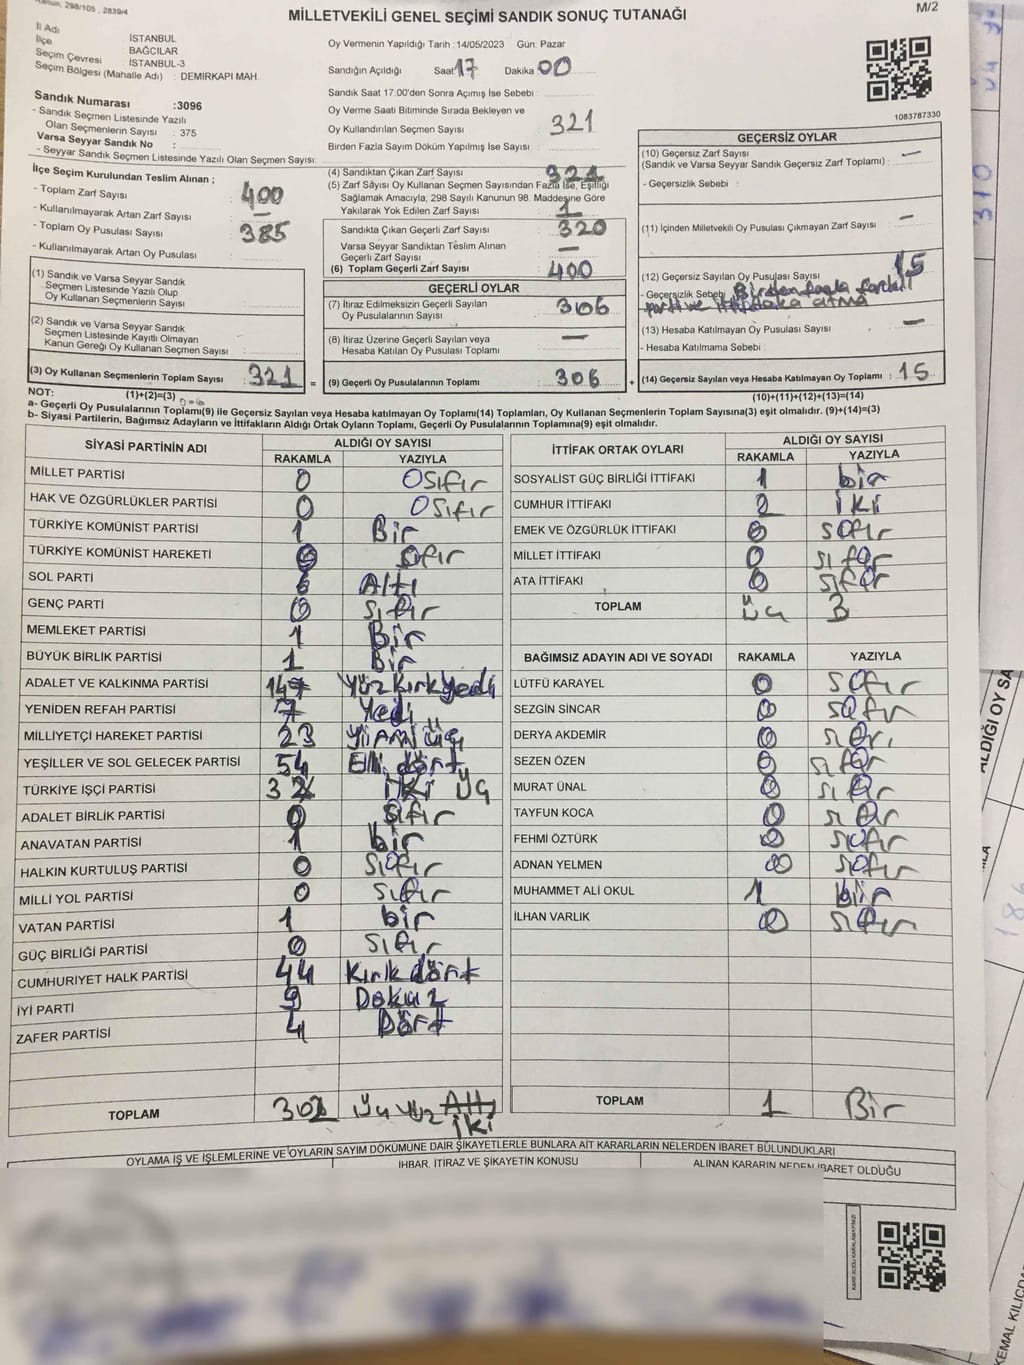 298/105 , 2839/4
MİLLETVEKİLİ GENEL SEÇİMİ SANDIK SONUÇ TUTANAĞI
M/2
İl Adı : İSTANBUL
İlçe : BAĞCILAR
Seçim Çevresi : İSTANBUL-3
Seçim Bölgesi (Mahalle Adı) : DEMİRKAPI MAH.
Sandık Numarası :3096
- Sandık Seçmen Listesinde Yazılı
Olan Seçmenlerin Sayısı : 375
Varsa Seyyar Sandık No :
- Seyyar Sandık Seçmen Listesinde Yazılı Olan Seçmen Sayısı:
Oy Vermenin Yapıldığı Tarih :14/05/2023 Gün: Pazar
Sandığın Açıldığı Saat: 17 Dakika 00
Sandık Saat 17:00'den Sonra Açımış İse Sebebi :
Oy Verme Saati Bitiminde Sırada Bekleyen ve
Oy Kullandırılan Seçmen Sayısı : 321
Birden Fazla Sayım Döküm Yapılmış İse Sayısı :
1083787330
İlçe Seçim Kurulundan Teslim Alınan ;
- Toplam Zarf Sayısı : 400
- Kullanılmayarak Artan Zarf Sayısı : —
- Toplam Oy Pusulası Sayısı : 385
- Kullanılmayarak Artan Oy Pusulası :
(1) Sandık ve Varsa Seyyar Sandık
Seçmen Listesinde Yazılı Olup
Oy Kullanan Seçmenlerin Sayısı :
(2) Sandık ve Varsa Seyyar Sandık
Seçmen Listesinde Kayıtlı Olmayan
Kanun Gereği Oy Kullanan Seçmen Sayısı :
(3) Oy Kullanan Seçmenlerin Toplam Sayısı : 321 =
(1)+(2)=(3)
(4) Sandıktan Çıkan Zarf Sayısı : 321
(5) Zarf Sayısı Oy Kullanan Seçmen Sayısından Fazla İse, Eşitliği
Sağlamak Amacıyla; 298 Sayılı Kanunun 98. Maddesine Göre
Yakılarak Yok Edilen Zarf Sayısı : 1
Sandıkta Çıkan Geçerli Zarf Sayısı : 320
Varsa Seyyar Sandıktan Teslim Alınan
Geçerli Zarf Sayısı : —
(6) Toplam Geçerli Zarf Sayısı : 400
GEÇERLİ OYLAR
(7) İtiraz Edilmeksizin Geçerli Sayılan
Oy Pusulalarının Sayısı : 306
(8) İtiraz Üzerine Geçerli Sayılan veya
Hesaba Katılan Oy Pusulası Toplamı : —
(9) Geçerli Oy Pusulalarının Toplamı : 306 +
GEÇERSİZ OYLAR
(10) Geçersiz Zarf Sayısı
(Sandık ve Varsa Seyyar Sandık Geçersiz Zarf Toplamı) : —
- Geçersizlik Sebebi :
(11) İçinden Milletvekili Oy Pusulası Çıkmayan Zarf Sayısı : —
(12) Geçersiz Sayılan Oy Pusulası Sayısı : 15
- Geçersizlik Sebebi : Birden fazla farklı
parti ve ittifaka atma
(13) Hesaba Katılmayan Oy Pusulası Sayısı : —
- Hesaba Katılmama Sebebi :
(14) Geçersiz Sayılan veya Hesaba Katılmayan Oy Toplamı : 15
(10)+(11)+(12)+(13)=(14)
NOT:
a- Geçerli Oy Pusulalarının Toplamı(9) ile Geçersiz Sayılan veya Hesaba katılmayan Oy Toplamı(14) Toplamları, Oy Kullanan Seçmenlerin Toplam Sayısına(3) eşit olmalıdır. (9)+(14)=(3)
b- Siyasi Partilerin, Bağımsız Adayların ve İttifakların Aldığı Ortak Oyların Toplamı, Geçerli Oy Pusulalarının Toplamına(9) eşit olmalıdır.
SİYASİ PARTİNİN ADI ALDIĞI OY SAYISI
RAKAMLA YAZIYLA
MİLLET PARTİSİ 0 0 Sıfır
HAK VE ÖZGÜRLÜKLER PARTİSİ 0 0 Sıfır
TÜRKİYE KOMÜNİST PARTİSİ 1 Bir
TÜRKİYE KOMÜNİST HAREKETİ 0 Sıfır
SOL PARTİ 6 Altı
GENÇ PARTİ 0 Sıfır
MEMLEKET PARTİSİ 1 Bir
BÜYÜK BİRLİK PARTİSİ 1 Bir
ADALET VE KALKINMA PARTİSİ 147 Yüz kırk yedi
YENİDEN REFAH PARTİSİ 7 Yedi
MİLLİYETÇİ HAREKET PARTİSİ 23 Yirmi üç
YEŞİLLER VE SOL GELECEK PARTİSİ 54 Elli dört
TÜRKİYE İŞÇİ PARTİSİ 3 2 İki Üç
ADALET BİRLİK PARTİSİ 0 Sıfır
ANAVATAN PARTİSİ 1 bir
HALKIN KURTULUŞ PARTİSİ 0 Sıfır
MİLLİ YOL PARTİSİ 0 Sıfır
VATAN PARTİSİ 1 bir
GÜÇ BİRLİĞİ PARTİSİ 0 Sıfır
CUMHURİYET HALK PARTİSİ 44 Kırk dört
İYİ PARTİ 9 Dokuz
ZAFER PARTİSİ 4 Dört
TOPLAM 302 Üç Yüz Altı
İki
İTTİFAK ORTAK OYLARI ALDIĞI OY SAYISI
RAKAMLA YAZIYLA
SOSYALİST GÜÇ BİRLİĞİ İTTİFAKI 1 bir
CUMHUR İTTİFAKI 2 İki
EMEK VE ÖZGÜRLÜK İTTİFAKI 0 Sıfır
MİLLET İTTİFAKI 0 Sıfır
ATA İTTİFAKI 0 Sıfır
TOPLAM Üç 3
BAĞIMSIZ ADAYIN ADI VE SOYADI RAKAMLA YAZIYLA
LÜTFÜ KARAYEL 0 Sıfır
SEZGİN SİNCAR 0 Sıfır
DERYA AKDEMİR 0 Sıfır
SEZEN ÖZEN 0 Sıfır
MURAT ÜNAL 0 Sıfır
TAYFUN KOCA 0 Sıfır
FEHMİ ÖZTÜRK 0 Sıfır
ADNAN YELMEN 0 Sıfır
MUHAMMET ALİ OKUL 1 bir
İLHAN VARLIK 0 Sıfır
TOPLAM 1 Bir
OYLAMA İŞ VE İŞLEMLERİNE VE OYLARIN SAYIM DÖKÜMÜNE DAİR ŞİKAYETLERLE BUNLARA AİT KARARLARIN NELERDEN İBARET BULUNDUKLARI
İHBAR, İTİRAZ VE ŞİKAYETİN KONUSU ALINAN KARARIN NEDEN İBARET OLDUĞU
310
ALDIĞI OY SA
186